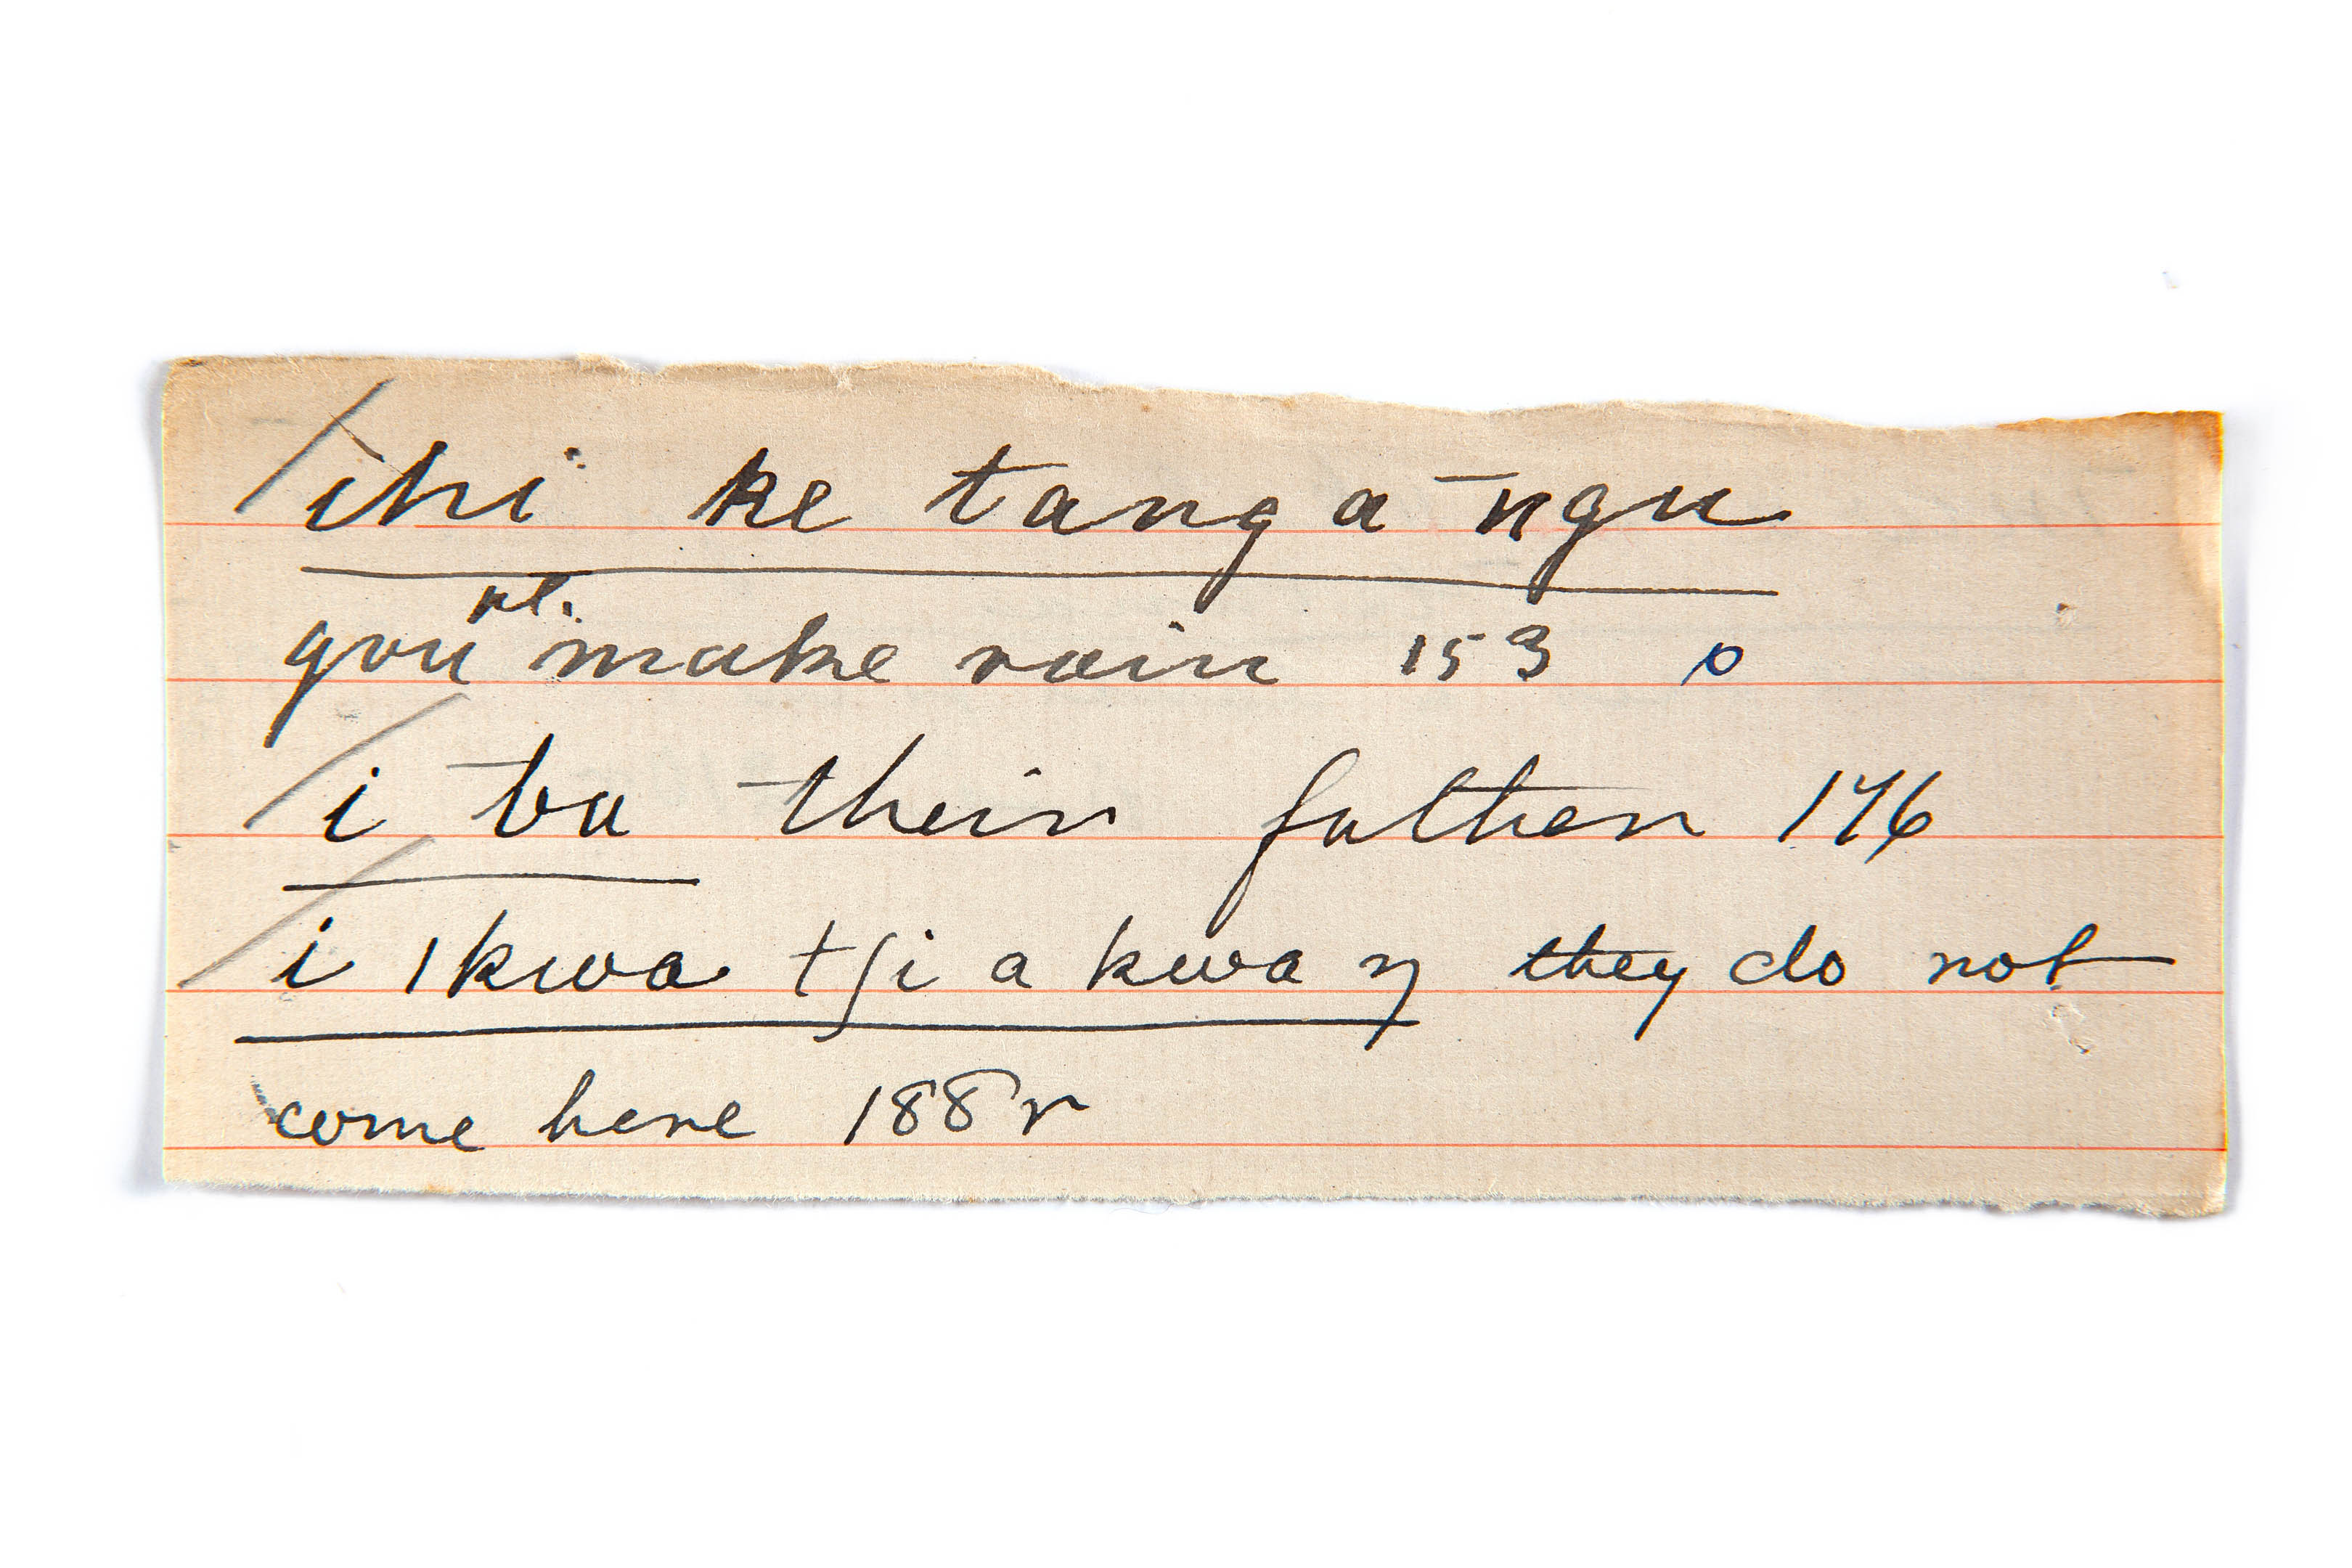 ihi ke tang a ngu
you pl. make rain 153 o
i ba their father 176
i ikwa tʃi a kwa ŋ they do not
come here 188 r